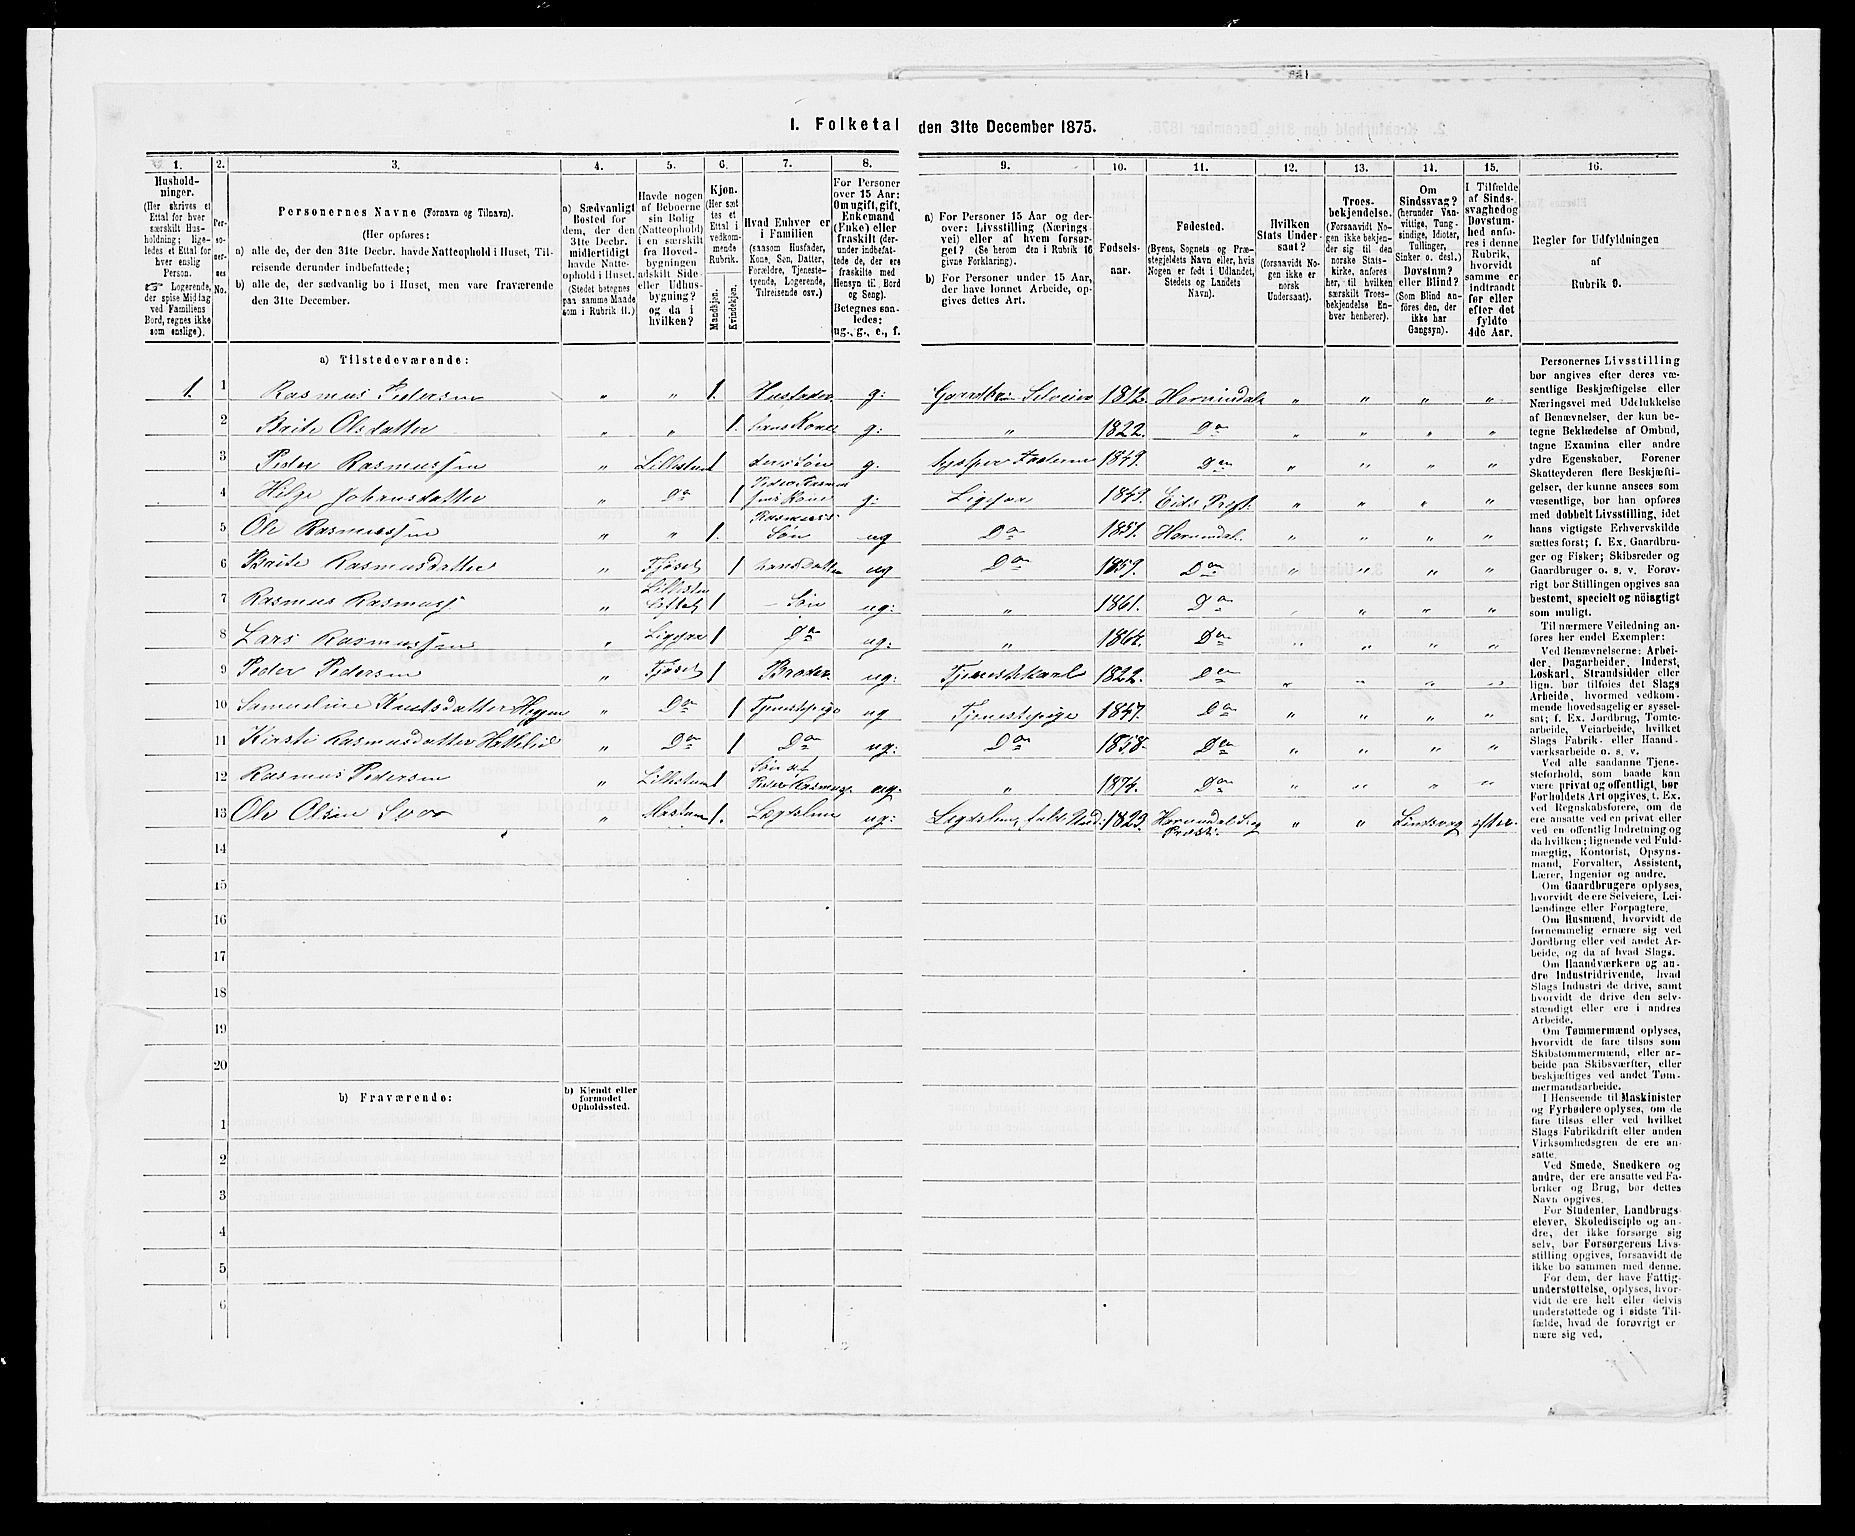 1. Folketal den 31te December 1875.
1. 2. 3. 4. 5. 6. 7. 8. 9. 10. 11. 12. 13. 14. 15. 16.
Hushold-
ninger.
(Her skrives et
Ettal for hver
særskilt Hus-
holdning; lige-
ledes et Ettal for
hver enslig
Person.
☞ Logerende,
der spise Middag
ved Familiens
Bord, regnes ikke
som enslige).
Per-
so-
ner-
nes
No.
Personernes Navne (Fornavn og Tilnavn).
(Her opføres:
a) alle de, der den 31te Decbr. havde Natteophold i Huset, Til-
reisende derunder indbefattede;
b) alle de, der sædvanlig bo i Huset, men vare fraværende
den 31te December.
a) Sædvanligt
Bosted for
dem, der den
31te Decbr.
midlertidigt
havde Natte-
ophold i Huset.
(Stedet betegnes
paa samme Maade
som i Rubrik 11.)
Havde nogen
af Beboerne
sin Bolig
(Natteophold)
i en særskilt
fra Hoved-
bygningen
adskilt Side-
eller Udhus-
bygning?
og da i
hvilken?
Kjøn.
(Her sæt-
tes et
Ettal i
vedkom-
mende
Rubrik.
Mandkjøn.
Kvindekjøn.
Hvad Enhver er
i Familien
(saasom Husfader,
Kone, Søn, Datter,
Forældre, Tjeneste-
tyende, Logerende,
Tilreisende osv.)
For Personer
over 15 Aar:
Om ugift, gift,
Enkemand
(Enke) eller
fraskilt (der-
under indbefat-
tede de, der ere
fraskilte med
Hensyn til Bord
og Seng).
Betegnes saa-
ledes:
ug., g., e., f.
a) For Personer 15 Aar og der-
over: Livsstilling (Nærings-
vei) eller af hvem forsør-
get? (Se herom den i Rubrik 16
givne Forklaring).
b) For Personer under 15 Aar,
der have lønnet Arbeide, op-
gives dettes Art.
Fødsels-
aar.
Fødested.
(Byens, Sognets og Præ-
stegjeldets Navn eller, hvis
Nogen er født i Udlandet,
Stedets og Landets
Navn).
Hvilken
Stats Under-
saat?
(forsaavidt No-
gen ikke er
norsk
Undersaat).
Troes-
bekjendelse.
(Forsaavidt No-
gen ikke bekjen-
der sig til den
norske Stats-
kirke, anføres
her, til hvilken
særskilt Troes-
bekjendelse En-
hver henhører).
Om
Sindssvag?
(herunder Van-
vittige, Tung-
sindige, Idioter,
Tullinger,
Sinker o. desl.)
Døvstum?
eller Blind?
(Som Blind an-
føres den, der
ikke har
Gangsyn).
I Tilfælde
af Sinds-
svaghed og
Døvstum-
hed anfø-
res i denne
Rubrik,
hvorvidt
samme er
indtraadt
før eller
efter det
fyldte
4de Aar.
Regler for Udfyldningen
af
Rubrik 9.
a) Tilstedeværende:
1. 1 Rasmus Pedersen " " 1. Husfader g: Gaardbr: Selveier 1812. Hornindal " " " "
2 Brite Olsdatter " " 1. hans Kone g: " 1822. Do " " " "
3 Peder Rasmussen " Lillestuen 1 deres Søn g. hjelper Faderen 1849. Do " " " "
4 Hilge Johansdatter " Do 1 Peder Rasmus
sens Kone g: Ligesaa 1849. Eids Prgt. " " " "
5 Ole Rasmussen " " 1. Rasmuss:
Søn ug Do 1851. Hornindal. " " " "
6 Brite Rasmusdatter " Fjøset 1 hans datter ug Do 1859. Do " " " "
7 Rasmus Rasmuss. " Lillestuen 1 - Søn ug: " 1861. Do " " " "
8 Lars Rasmussen " Ligesaa 1 Do ug: " 1864. Do " " " "
9 Peder Pedersen " Fjøset 1 Broder. ug: Tjenestekarl 1822. Do " " " "
10 Samueline Knutsdatter " Do 1 Tjenestepige ug Tjenestepige 1847. Do " " " "
11 Kirsti Rasmusdatter " Do 1 Do ug: Do 1858. Do " " " "
12 Rasmus Pedersen " Lillestuen 1 Søn af
Peder Rasmuss. ug: " 1874. Do " " " "
13 Ole Olsen " 1. Lægdslem ug: Lægdslem, 1823. Hornindal Sog " " Sindsvag efter.
14
15
16
17
18
19
20
b) Fraværende:
b) Kjendt eller
formodet
Opholdssted.
1
2
3
4
5
6
Personernes Livsstilling
bør angives efter deres væ-
sentlige Beskjæftigelse eller
Næringsvei med Udelukkelse
af Benævnelser, der kun be-
tegne Beklædelse af Ombud,
tagne Examina eller andre
ydre Egenskaber. Forener
Skatteyderen flere Beskjæfti-
gelser, der kunne ansees som
væsentlige, bør han opføres
med dobbelt Livsstilling, idet
hans vigtigste Erhvervskilde
sættes først; f. Ex. Gaardbru-
ger og Fisker; Skibsreder og
Gaardbruger o. s. v. Forøv-
rigt bør Stillingen opgives saa
bestemt, specielt og nøiagtigt
som muligt.
Til nærmere Veiledning an-
føres her endel Exempler:
Ved Benævnelserne: Arbei-
der, Dagarbeider, Inderst,
Løskarl, Strandsidder eller
lign. bør tilføies det Slags
Arbeide, hvormed vedkom-
mende hovedsagelig er syssel-
sat; f. Ex. Jordbrug, Tomte-
arbeide, Veiarbeide, hvilket
Slags Fabrik- eller Haand-
værksarbeide o. s. v.
Ved alle saadanne Tjene-
steforhold, som baade kan
være privat og offentligt, bør
Forholdets Art opgives, t. Ex.
ved Regnskabsførere, om de
ere ansatte ved en privat eller
ved en offentlig Indretning og
da hvilken; lignende ved Fuld-
mægtig, Kontorist, Opsyns-
mand, Forvalter, Assistent,
Lærer, Ingeniør og andre.
Om Gaardbrugere oplyses,
hvorvidt de ere Selveiere, Lei-
lændinge eller Forpagtere.
Om Husmænd, hvorvidt de
fornemmelig ernære sig ved
Jordbrug eller ved andet Ar-
beide, og da af hvad Slags.
Om Haandværkere og an-
dre Industridrivende, hvad
Slags Industri de drive, samt
hvorvidt de drive den selv-
stændigt eller ere i andres
Arbeide.
Om Tømmermænd oplyses,
hvorvidt de fare tilsøs som
Skibstømmermænd, eller ar-
beide paa Skibsværfter, eller
beskjæftiges ved andet Tøm-
mermandsarbeide.
I Henseende til Maskinister
og Fyrbødere oplyses, om de
fare tilsøs eller ved hvilket
Slags Fabrikdrift eller anden
Virksomhedsgren de ere an-
satte.
Ved Smede, Snedkere og
andre, der ere ansatte ved Fa-
briker og Brug, bør dettes
Navn opgives.
For Studenter, Landbrugs-
elever, Skoledisciple og an-
dre, der ikke forsørge sig
selv, bør Forsørgerens Livs-
stilling opgives, forsaavidt de
ikke bo sammen med denne.
For dem, der have Fattig-
understøttelse, oplyses, hvor-
vidt de ere helt eller delvis
understøttede og i sidste Til-
fælde, hvad de forøvrigt er-
nære sig ved.